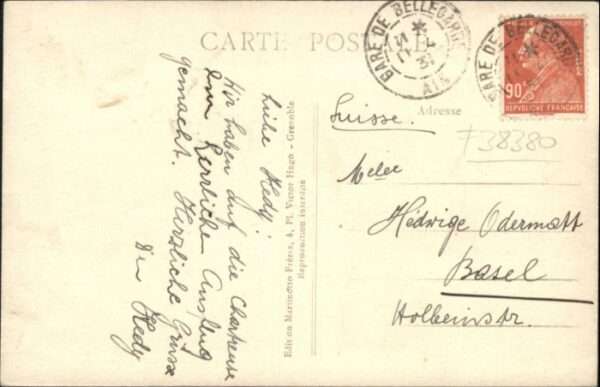 CARTE POSTALE
Liebe Hedy!
Wir haben auf die Chartreuse
herrliche Ausflug
gemacht. Herzliche Grüsse
Hedy
Edition Martinotto Frères, 4, Pl. Victor Hugo - Grenoble
Reproduction interdite
GARE DE BELLEGARDE
AIN
GARE DE BELLEGARDE
90c
REPVBLIQVE FRANÇAISE
Adresse
Suisse.
F38380
Hedwige Odermatt
Basel
Holbeinstr.